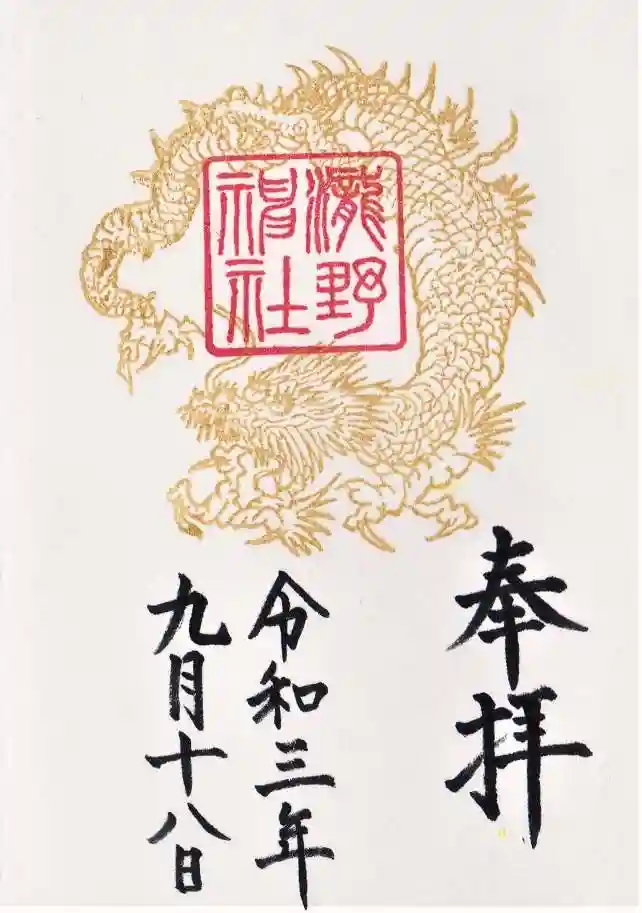 瀧野
神社
奉拝
令和三年
九月十八日